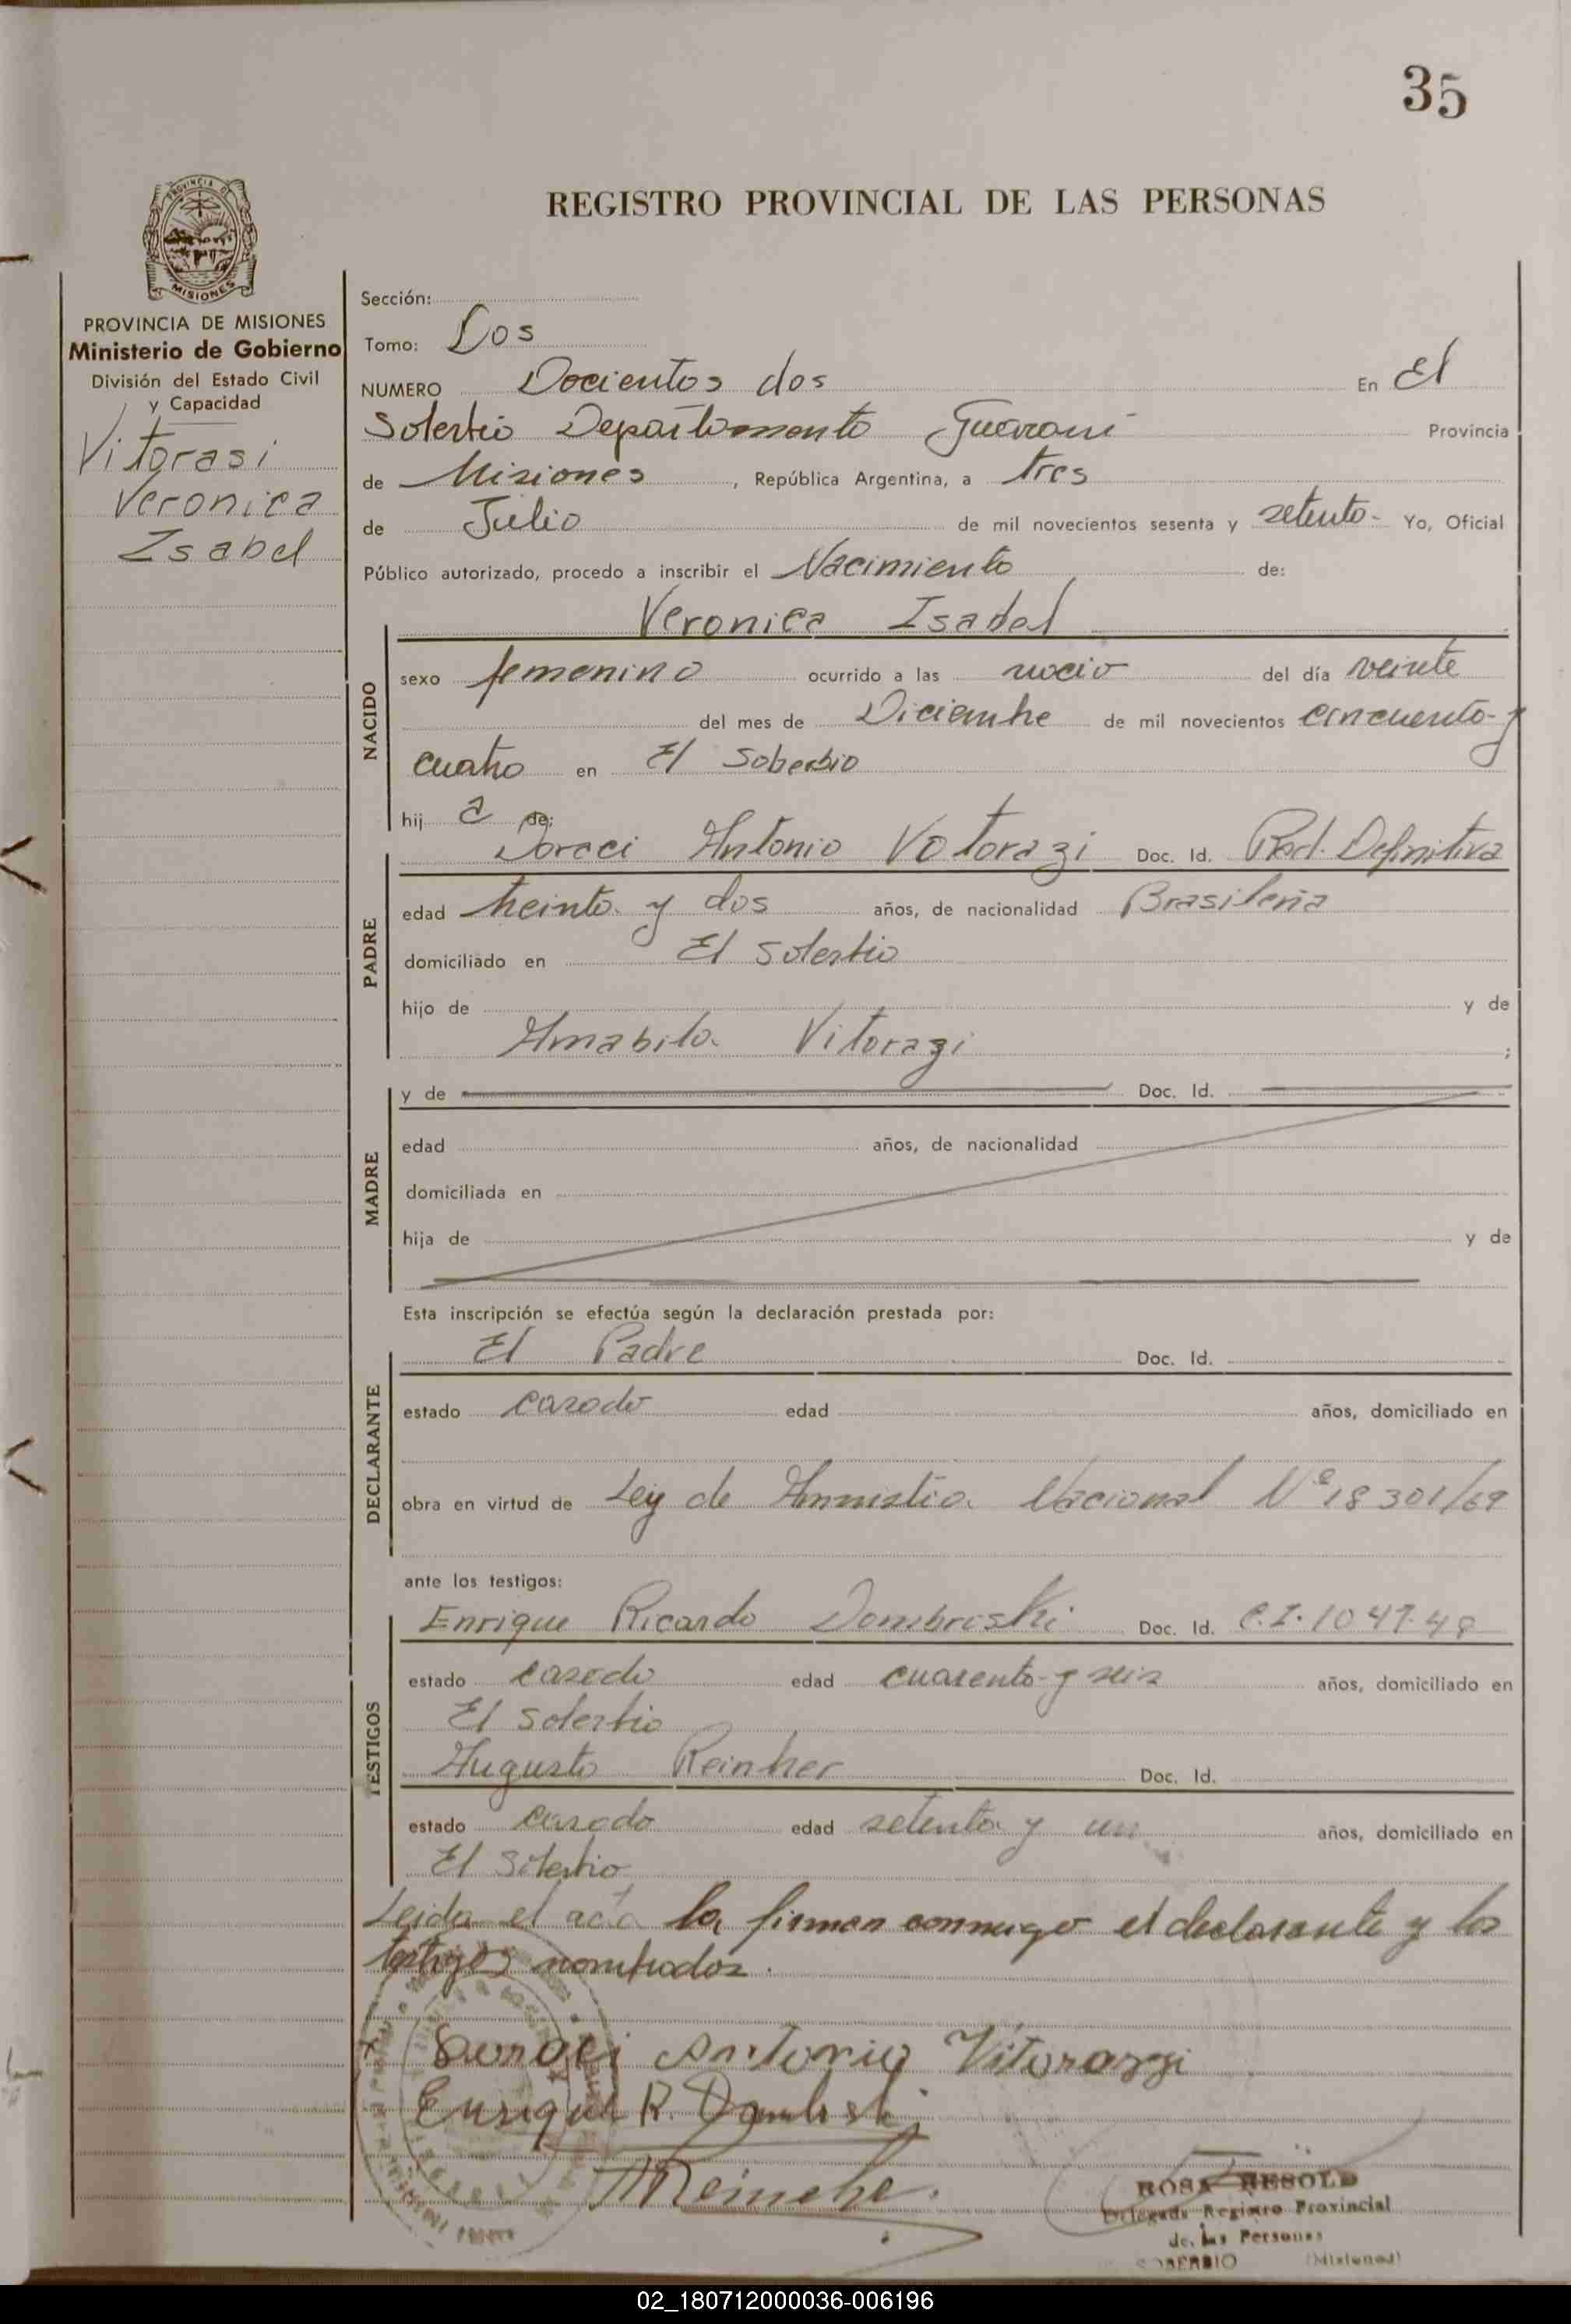 35
REGISTRO PROVINCIAL DE LAS PERSONAS
MISIONES
PROVINCIA DE MISIONES
Ministerio de Gobierno
División del Estado Civil
y Capacidad
Vitorasi
Veronica
Isabel
Sección:
Tomo: Dos
NUMERO Docientos dos En El
Soberbio Departamento Guarani Provincia
de Misiones, República Argentina, a tres
de Julio de mil novecientos sesenta y setenta- Yo, Oficial
Público autorizado, procedo a inscribir el Nacimiento de:
Veronica Isabel
NACIDO
sexo femenino ocurrido a las del día veinte
del mes de Diciembre de mil novecientos cincuenta y
cuatro en El Soberbio
hij a de:
PADRE
Doraci Antonio Votorazi Doc. Id. Rad. Definitiva
edad treinta y dos años, de nacionalidad Brasileña
domiciliado en El Soberbio
hijo de y de
Amabila Vitorazi ;
MADRE
y de Doc. Id.
edad años, de nacionalidad
domiciliada en
hija de y de
Esta inscripción se efectúa según la declaración prestada por:
DECLARANTE
El Padre Doc. Id.
estado casado edad años, domiciliado en
obra en virtud de Ley de Amnistia Nacional Nº 18301/69
ante los testigos:
TESTIGOS
Enrique Ricardo Dombroski Doc. Id. C.I. 1047.48
estado casado edad cuarenta y seis años, domiciliado en
El Soberbio
Augusto Reinher Doc. Id.
estado casado edad setenta y un años, domiciliado en
El Soberbio
Leida el acta la firman conmigo el declarante y los
testigos nombrados.
Doraci Antonio Vitorazzi
Enrique R. Dombroski
ROSA RESOLD
Delegada Registro Provincial
de las Personas
SOBERBIO (Misiones)
02_180712000036-006196